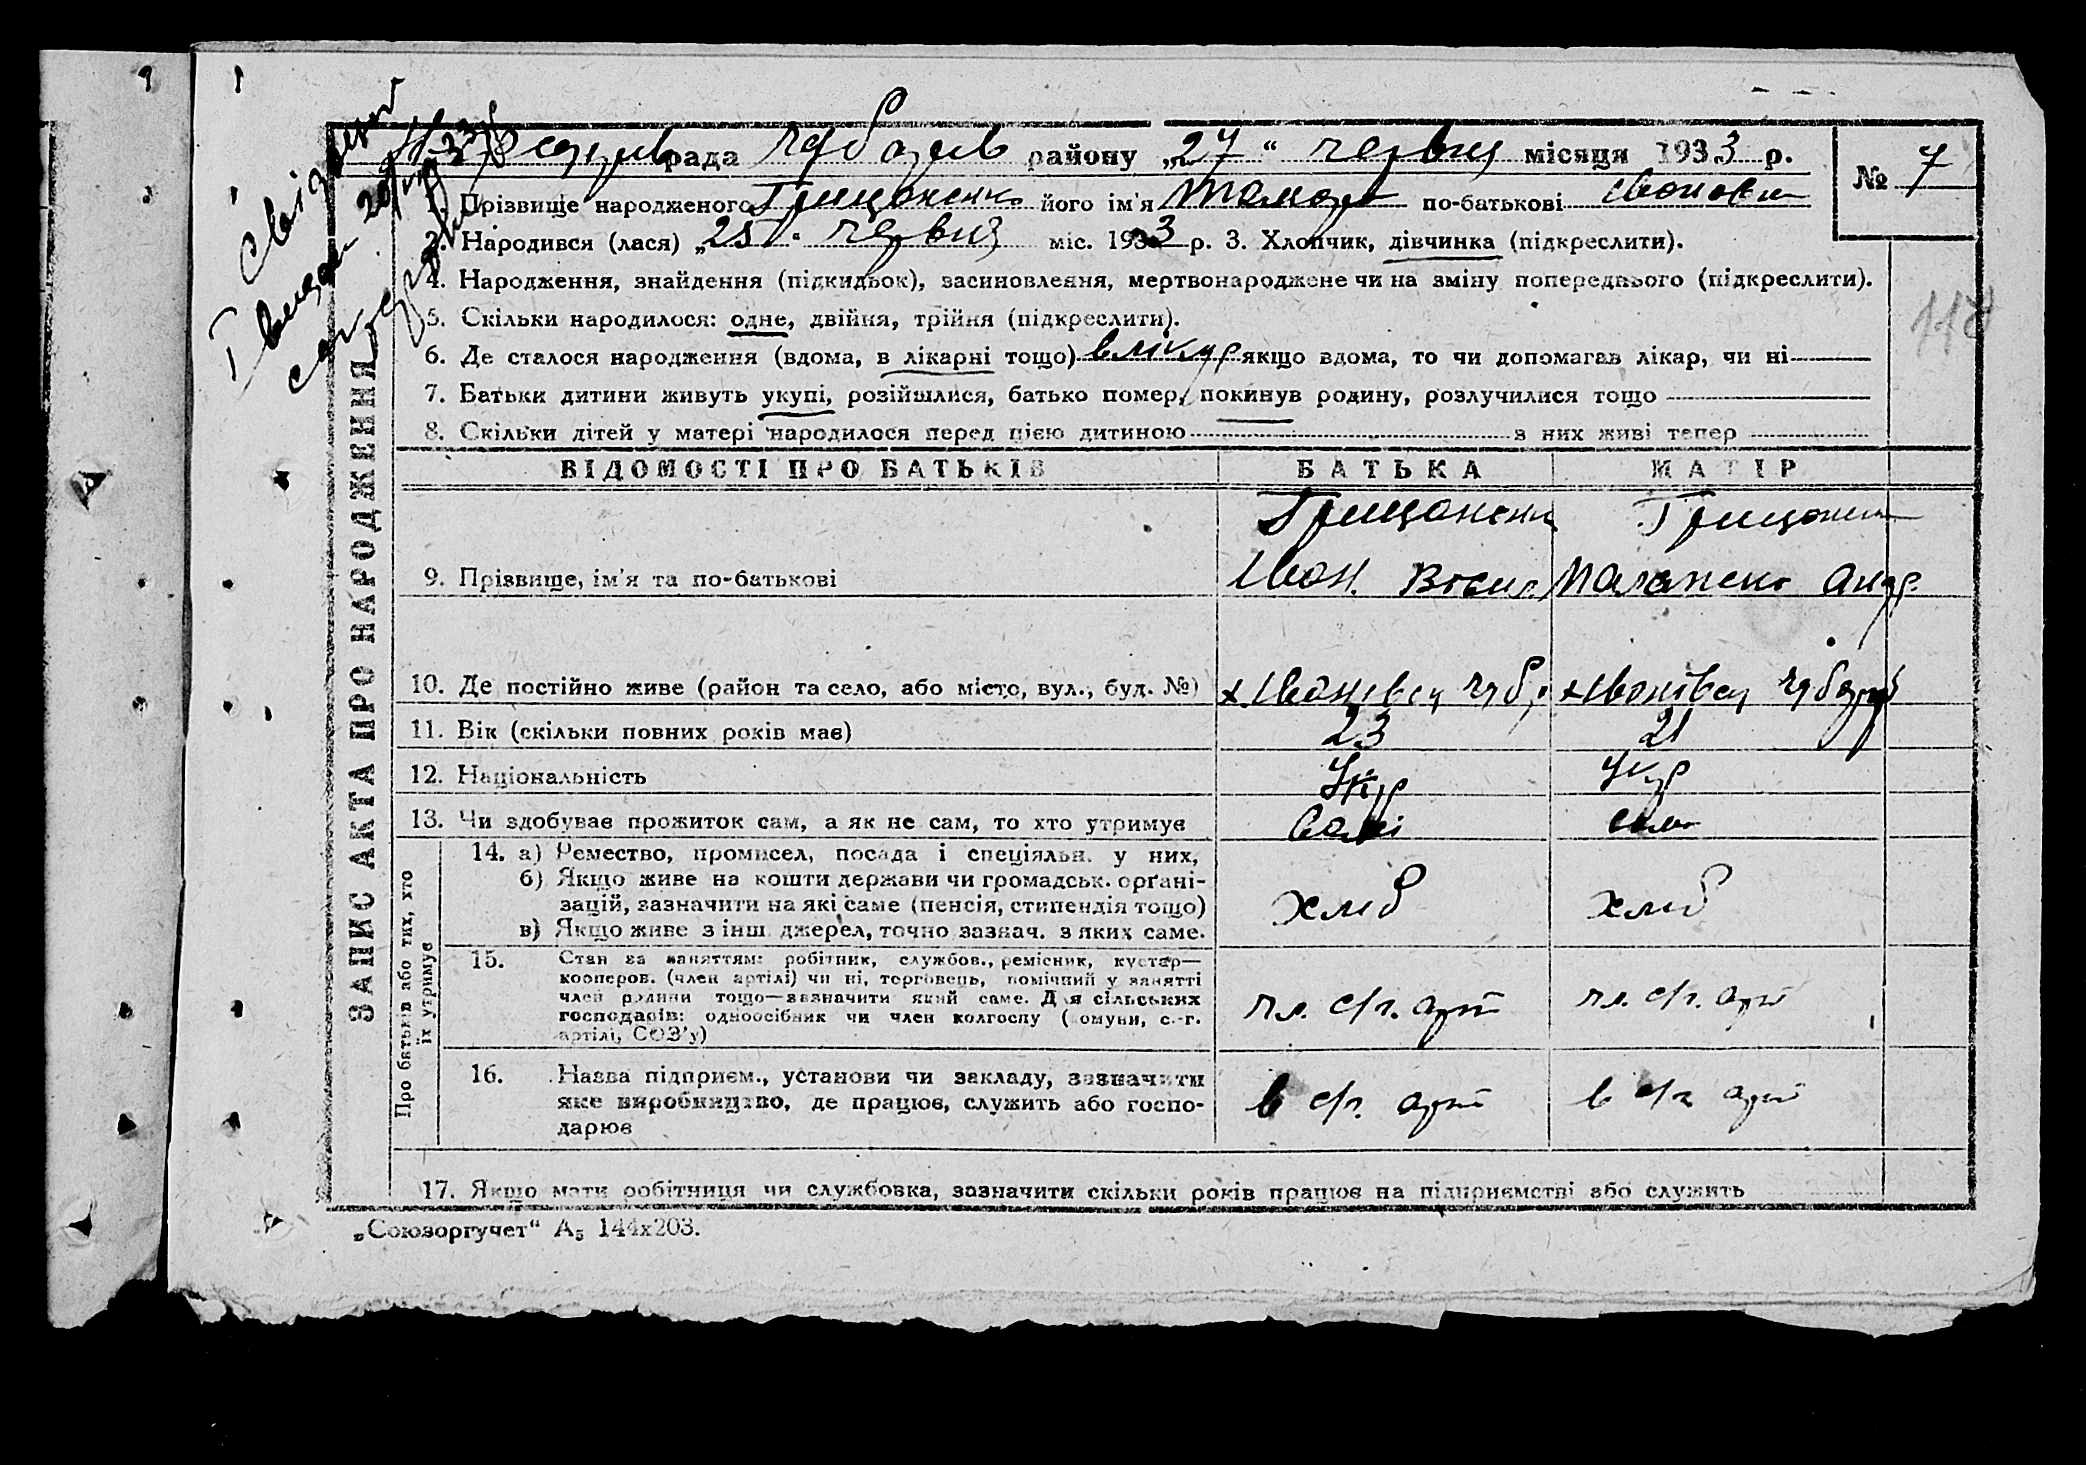 рада Чубарів району „27“ червня місяця 1933 р.
№ 7
1. Прізвище народженого Грицаненко його ім'я Тамара по-батькові Іванові
2. Народився (лася) „25“ червня міс. 1933 р. 3. Хлопчик, дівчинка (підкреслити).
4. Народження, знайдення (підкидьок), засиновлення, мертвонароджене чи на зміну попереднього (підкреслити).
118
5. Скільки народилося: одне, двійня, трійня (підкреслити).
6. Де сталося народження (вдома, в лікарні тощо) в лікар якщо вдома, то чи допомагав лікар, чи ні
7. Батьки дитини живуть укупі, розійшлися, батько помер, покинув родину, розлучилися тощо
8. Скільки дітей у матері народилося перед цією дитиною з них живі тепер
ЗАПИС АКТА ПРО НАРОДЖЕННЯ
ВІДОМОСТІ ПРО БАТЬКІВ БАТЬКА МАТІР
Грицаненк Грицанен
9. Прізвище, ім'я та по-батькові Іван. Васил. Палажска Андр.
10. Де постійно живе (район та село, або місто, вул., буд. №) х. Іванівец Чуб. х Іванівец Чубарів
11. Вік (скільки повних років має) 23 21
12. Національність Укр Укр
13. Чи здобуває прожиток сам, а як не сам, то хто утримує Самі сама
Про батьків або тих, хто їх утримує
14. а) Ремество, промисел, посада і спеціяльн. у них,
б) Якщо живе на кошти держави чи громадськ. орґані-
зацій, зазначити на які саме (пенсія, стипендія тощо) хліб хліб
в) Якщо живе з інш. джерел, точно зазнач. з яких саме.
15. Стан за заняттям: робітник, службов., ремісник, кустар—
кооперов. (член артілі) чи ні, торговець, помічний у занятті
член родини тощо—зазначити який саме. Для сільських
господарів: одноосібник чи член колгоспу (комуни, с.-г. чл. с/г. арт чл. с/г. арт
артілі, СОЗ'у)
16. Назва підприєм., установи чи закладу, зазначити
яке виробництво, де працює, служить або госпо- в с/г. арт в с/г арт
дарює
17. Якщо мати робітниця чи службовка, зазначити скільки років працює на підприємстві або служить
„Союзоргучет“ А₅ 144х203.